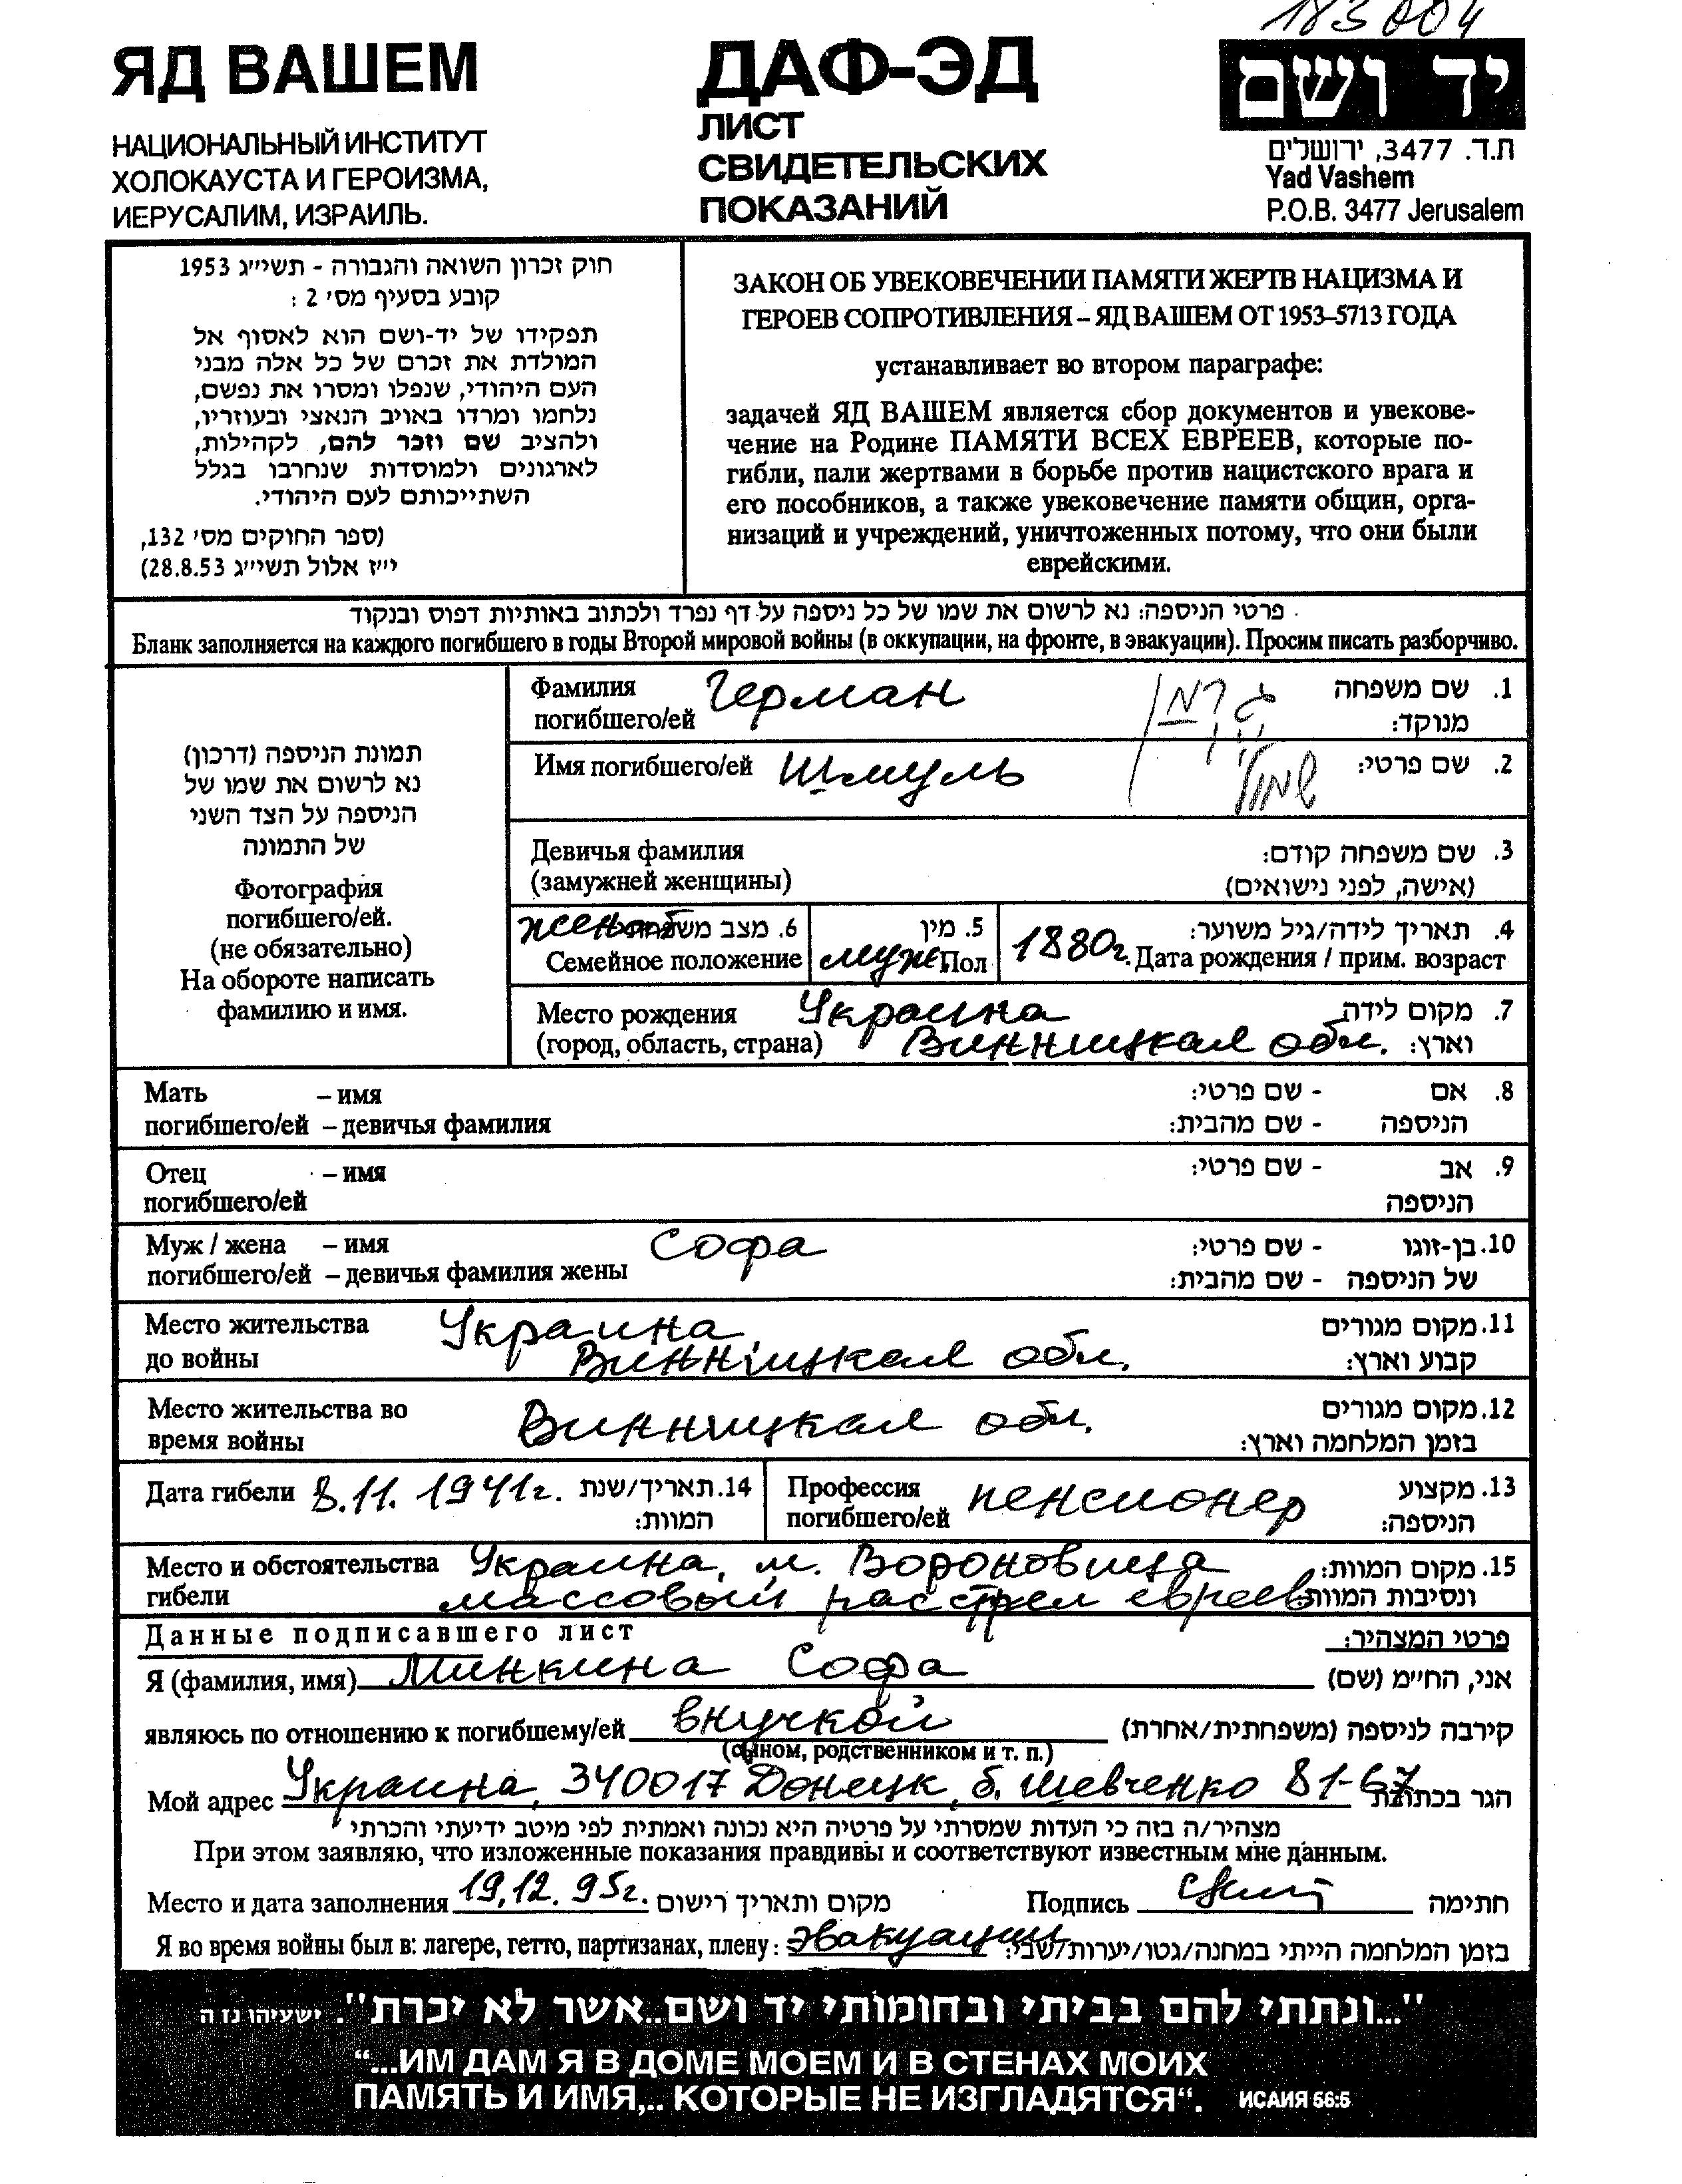 183004
ЯД ВАШЕМ
НАЦИОНАЛЬНЫЙ ИНСТИТУТ
ХОЛОКАУСТА И ГЕРОИЗМА,
ИЕРУСАЛИМ, ИЗРАИЛЬ.
ДАФ-ЭД
ЛИСТ
СВИДЕТЕЛЬСКИХ
ПОКАЗАНИЙ
יד ושם
ת.ד. 3477, ירושלים
Yad Vashem
P.O.B. 3477 Jerusalem
חוק זכרון השואה והגבורה - תשי״ג 1953
קובע בסעיף מס׳ 2 :
תפקידו של יד-ושם הוא לאסוף אל
המולדת את זכרם של כל אלה מבני
העם היהודי, שנפלו ומסרו את נפשם,
נלחמו ומרדו באויב הנאצי ובעוזריו,
ולהציב שם וזכר להם, לקהילות,
לארגונים ולמוסדות שנחרבו בגלל
השתייכותם לעם היהודי.
(ספר החוקים מס׳ 132,
י״ז אלול תשי״ג 28.8.53)
ЗАКОН ОБ УВЕКОВЕЧЕНИИ ПАМЯТИ ЖЕРТВ НАЦИЗМА И
ГЕРОЕВ СОПРОТИВЛЕНИЯ – ЯД ВАШЕМ ОТ 1953–5713 ГОДА
устанавливает во втором параграфе:
задачей ЯД ВАШЕМ является сбор документов и увекове-
чение на Родине ПАМЯТИ ВСЕХ ЕВРЕЕВ, которые по-
гибли, пали жертвами в борьбе против нацистского врага и
его пособников, а также увековечение памяти общин, орга-
низаций и учреждений, уничтоженных потому, что они были
еврейскими.
פרטי הניספה: נא לרשום את שמו של כל ניספה על דף נפרד ולכתוב באותיות דפוס ובנקוד
Бланк заполняется на каждого погибшего в годы Второй мировой войны (в оккупации, на фронте, в эвакуации). Просим писать разборчиво.
תמונת הניספה (דרכון)
נא לרשום את שמו של
הניספה על הצד השני
של התמונה
Фотография
погибшего/ей.
(не обязательно)
На обороте написать
фамилию и имя.
Фамилия Герман גרמן 1. שם משפחה
погибшего/ей מנוקד:
Имя погибшего/ей Шмуль שמול 2. שם פרטי:
Девичья фамилия 3. שם משפחה קודם:
(замужней женщины) (אישה, לפני נישואים)
женат 6. מצב משפחתי
Семейное положение
5. מין
муж Пол
4. תאריך לידה/גיל משוער:
1880г. Дата рождения / прим. возраст
Место рождения Украина 7. מקום לידה
(город, область, страна) Винницкая обл. וארץ:
Мать – имя 8. אם - שם פרטי:
погибшего/ей – девичья фамилия הניספה - שם מהבית:
Отец – имя 9. אב - שם פרטי:
погибшего/ей הניספה
Муж / жена – имя Софа 10. בן-זוגו - שם פרטי:
погибшего/ей – девичья фамилия жены של הניספה - שם מהבית:
Место жительства Украина, 11. מקום מגורים
до войны Винницкая обл. קבוע וארץ:
Место жительства во Винницкая обл. 12. מקום מגורים
время войны בזמן המלחמה וארץ:
Дата гибели 8.11.1941г. 14. תאריך/שנת
המוות:
Профессия пенсионер 13. מקצוע
погибшего/ей הניספה:
Место и обстоятельства Украина, м. Вороновица 15. מקום המוות:
гибели массовый расстрел евреев ונסיבות המוות:
Данные подписавшего лист פרטי המצהיר:
Я (фамилия, имя) Минкина Софа אני, החי״מ (שם)
являюсь по отношению к погибшему/ей внучкой קירבה לניספה (משפחתית/אחרת)
(сыном, родственником и т. п.)
Мой адрес Украина, 340017 Донецк, б. Шевченко 81-67 הגר בכתובת
מצהיר/ה בזה כי העדות שמסרתי על פרטיה היא נכונה ואמתית לפי מיטב ידיעתי והכרתי
При этом заявляю, что изложенные показания правдивы и соответствуют известным мне данным.
Место и дата заполнения 19.12.95г. מקום ותאריך רישום Подпись חתימה
Я во время войны был в: лагере, гетто, партизанах, плену: эвакуации בזמן המלחמה הייתי במחנה/גטו/יערות/שבי:
"...ונתתי להם בביתי ובחומותי יד ושם..אשר לא יכרת". ישעיהו נו ה
“...ИМ ДАМ Я В ДОМЕ МОЕМ И В СТЕНАХ МОИХ
ПАМЯТЬ И ИМЯ,.. КОТОРЫЕ НЕ ИЗГЛАДЯТСЯ“. ИСАИЯ 56:5